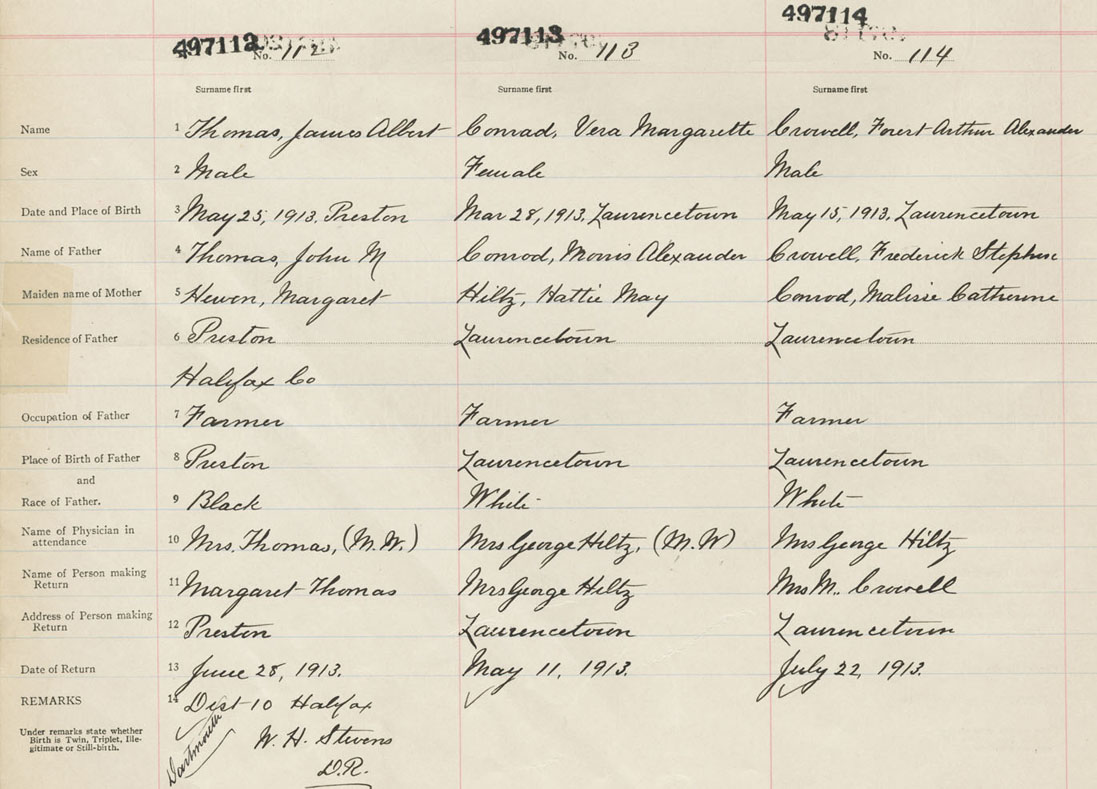 497112 497113 497114
No. 112 No. 113 No. 114
Surname first Surname first Surname first
Name 1 Thomas, James Albert Conrad, Vera Margarette Crowell, Forest Arthur Alexander
Sex 2 Male Female Male
Date and Place of Birth 3 May 25, 1913, Preston Mar 28, 1913, Laurencetown May 15, 1913, Laurencetown
Name of Father 4 Thomas, John M Conrod, Morris Alexander Crowell, Frederick Stephen
Maiden name of Mother 5 Margaret Hiltz, Hattie May Conrod, Malisse Catherine
Residence of Father 6 Preston Laurencetown Laurencetown
Halifax Co
Occupation of Father 7 Farmer Farmer Farmer
Place of Birth of Father 8 Preston Laurencetown Laurencetown
and
Race of Father. 9 Black White White
Name of Physician in
attendance 10 Mrs. Thomas, (M.W.) Mrs George Hiltz, (M.W) Mrs George Hiltz
Name of Person making
Return 11 Margaret Thomas Mrs George Hiltz Mrs M. Crowell
Address of Person making
Return 12 Preston Laurencetown Laurencetown
Date of Return 13 June 28, 1913. May 11, 1913. July 22, 1913.
REMARKS 14 Dist 10 Halifax
Under remarks state whether
Birth is Twin, Triplet, Ille-
gitimate or Still-birth.
Dartmouth
W. H. Stevens
D.R.